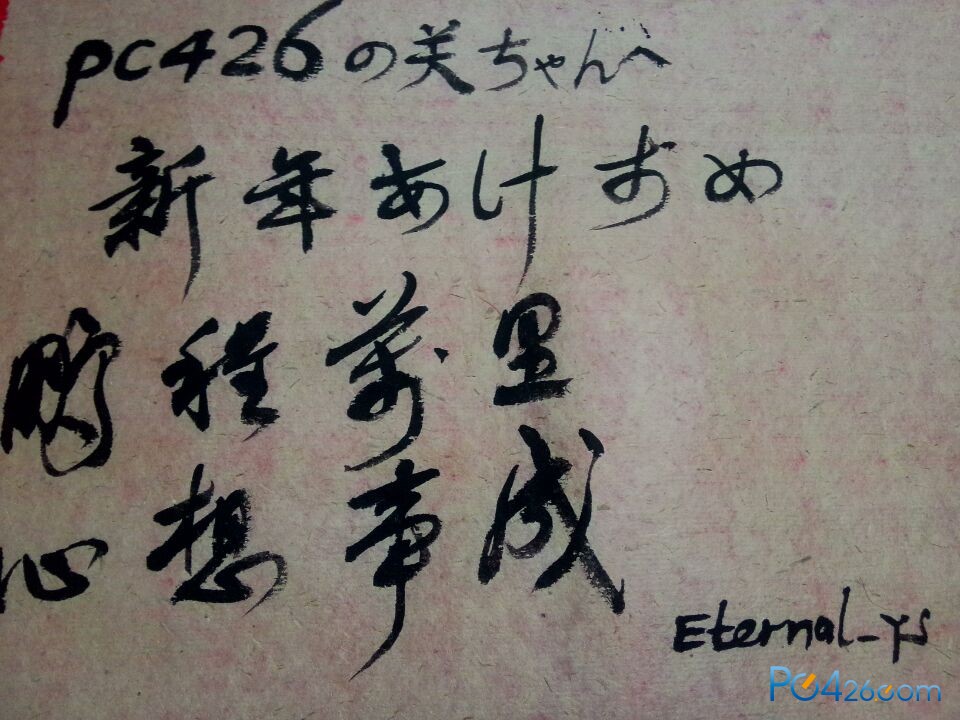 pc426の关ちゃんへ
新年あけすめ
鹏程萬里
心想事成
Eternal_ys
PC426.com